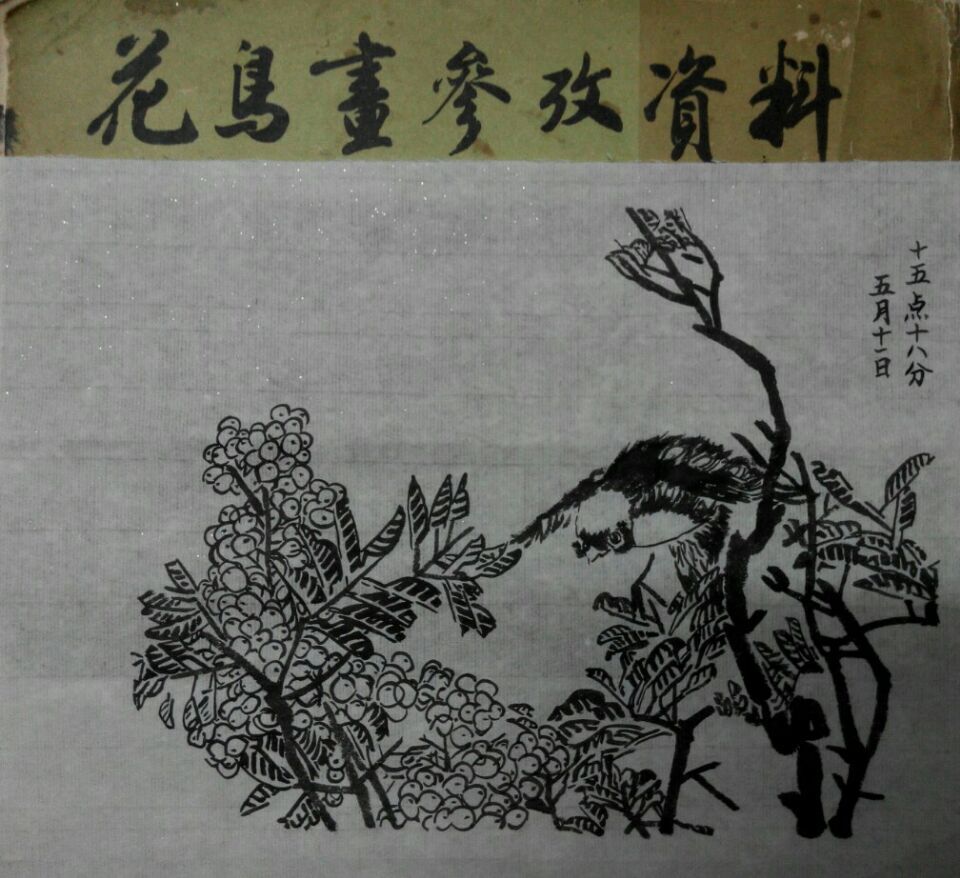 花鳥畫參攷資料
十五点十八分
五月十一日